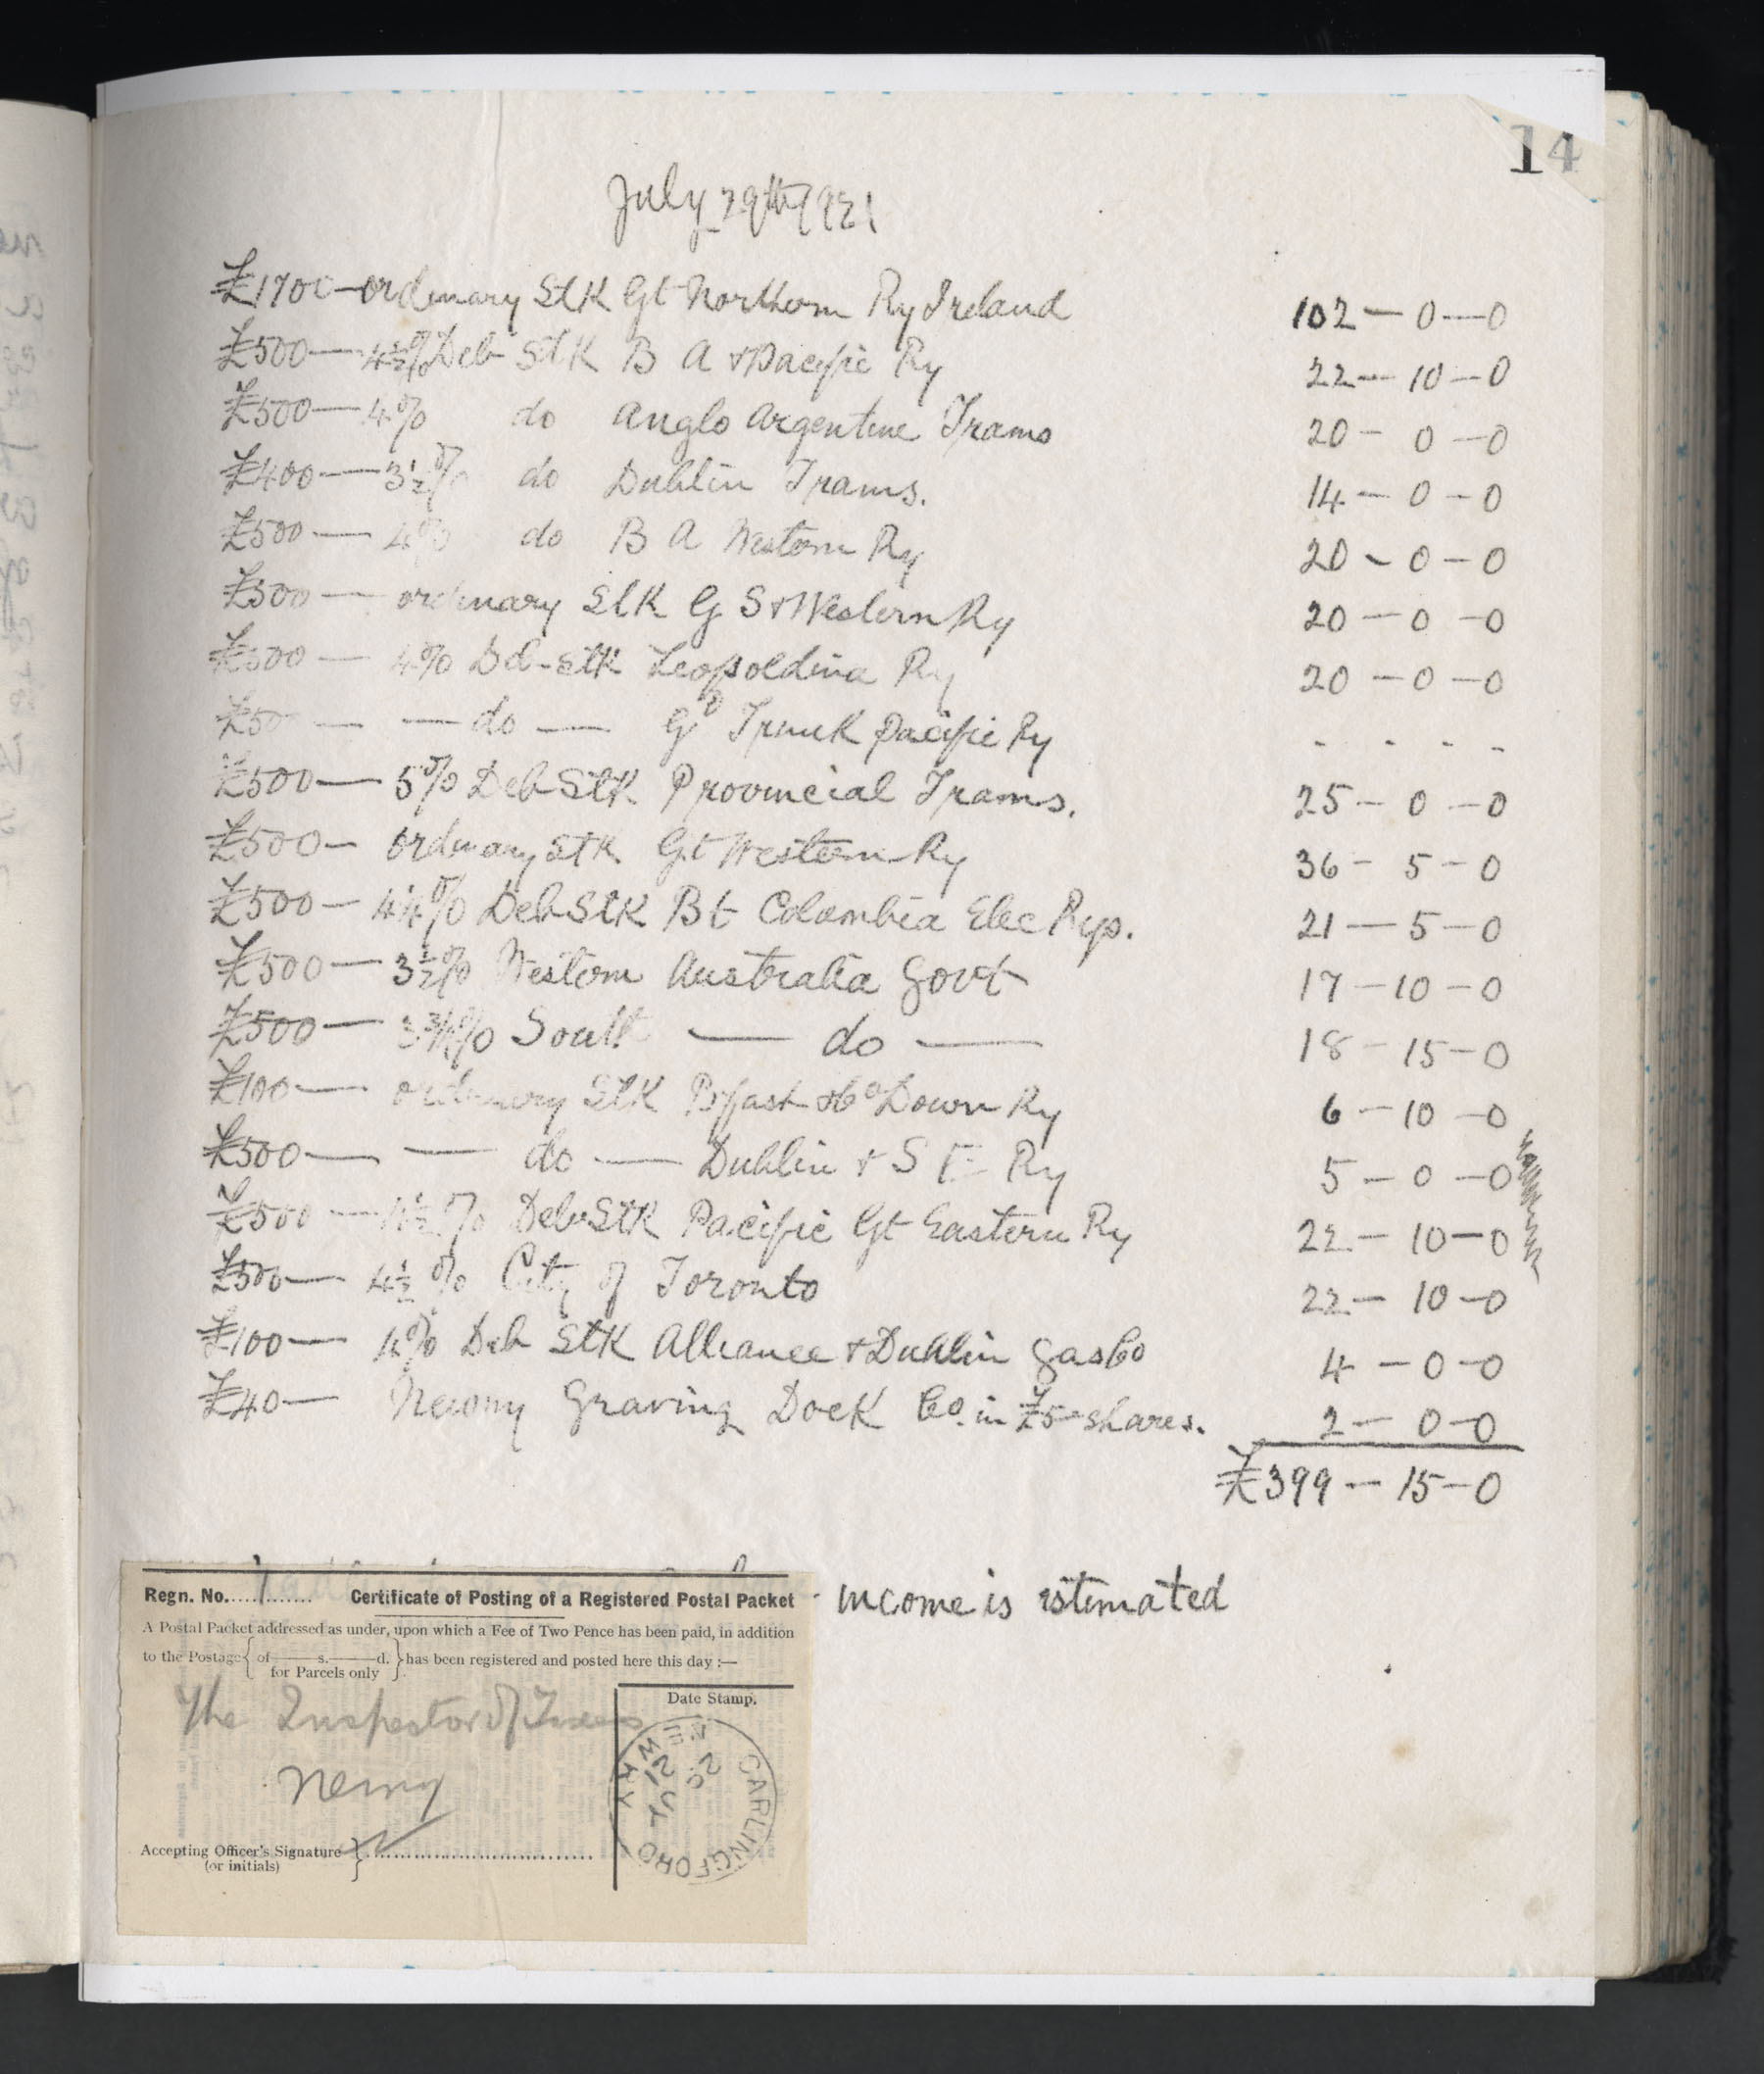 14
July 29th 1921
£1700—ordinary Stk Gt Northern Ry Ireland 102—0—0
£500—4½% Deb Stk B A & Pacific Ry 22—10—0
£500—4% do Anglo Argentine Trams 20—0—0
£400—3½% do Dublin Trams. 14—0—0
£500—4% do B A Western Ry 20—0—0
£500—ordinary Stk G S & Western Ry 20—0—0
£500—4% Deb-Stk Leopoldina Ry 20—0—0
£50 — — do — Gd Trunk Pacific Ry - - - -
£500—5% Deb Stk Provincial Trams. 25—0—0
£500—ordinary Stk Gt Western Ry 36—5—0
£500—4¼% Deb Stk Bt Columbia Elec Rys. 21—5—0
£500—3½% Western Australia Govt 17—10—0
£500—3¾% South — do — 18—15—0
£100—ordinary Stk Bfast & Co Down Ry 6—10—0
£500— — do — Dublin & S E Ry 5—0—0
£500—4½% Deb Stk Pacific Gt Eastern Ry 22—10—0
£500—4½% City of Toronto 22—10—0
£100—4% Deb Stk Alliance & Dublin Gas Co 4—0—0
£40— Newry Graving Dock Co. in £5 shares. 2—0—0
£399—15—0
income is estimated
Regn. No. 1 Certificate of Posting of a Registered Postal Packet
A Postal Packet addressed as under, upon which a Fee of Two Pence has been paid, in addition
to the Postage { of —— s. —— d. } has been registered and posted here this day :—
for Parcels only
The Inspector of Taxes
Newry
Date Stamp.
CARLINGFORD
NEWRY
Accepting Officer's Signature }
(or initials)